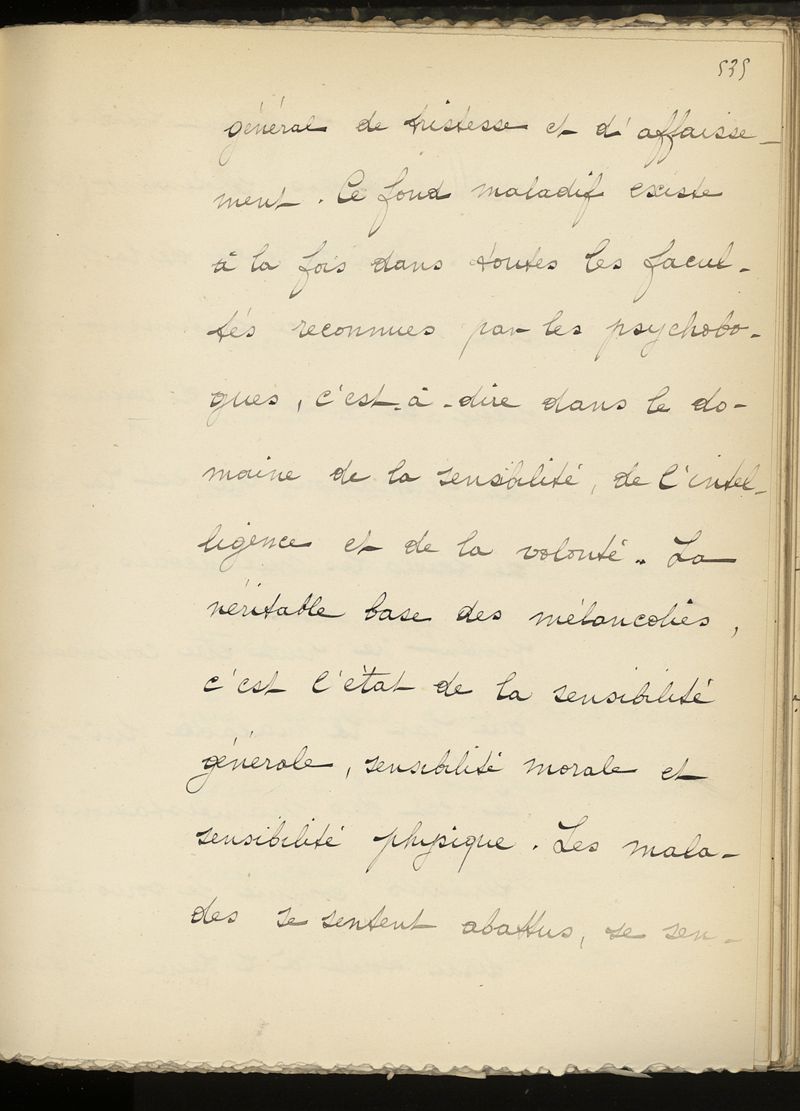 535
général de tristesse et d'affaisse-
ment. Ce fond maladif existe
à la fois dans toutes les facul-
tés reconnues par les psycholo-
gues, c'est-à-dire dans le do-
maine de la sensibilité, de l'intel-
ligence et de la volonté. La
véritable base des mélancolies,
c'est l'état de la sensibilité
générale, sensibilité morale et
sensibilité physique. Les mala-
des se sentent abattus, se sen-